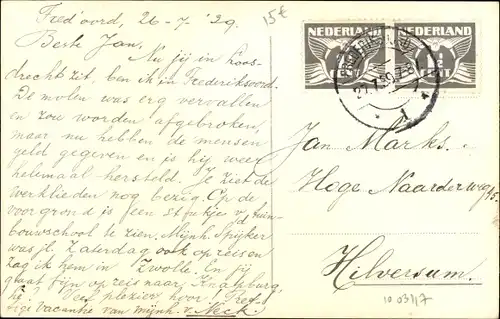 Fred'oord, 26-7-'39.
15€
Beste Jan,
Nu jij in Loos-
drecht zit, ben ik in Frederiksoord.
De molen was erg vervallen
en zou worden afgebroken,
maar nu hebben de mensen
geld gegeven en is hij weer
helemaal hersteld. Je ziet de
werklieden nog bezig. Op de
voorgrond is een stukje v/d tuin-
bouwschool te zien. Mijnh. Spijker
was jl. Zaterdag ook op reisen
zag ik hem in Zwolle. En jij
gaat fijn op reis naar
hè? Veel plezier, hoor! Pret-
tige vacantie van mijnh. v. Neck.
NEDERLAND NEDERLAND
1½
FREDERIKSOORD
27.7.39.7-8
1
Jan Marks.
Hoge Naarderweg
Hilversum.
10 03/17